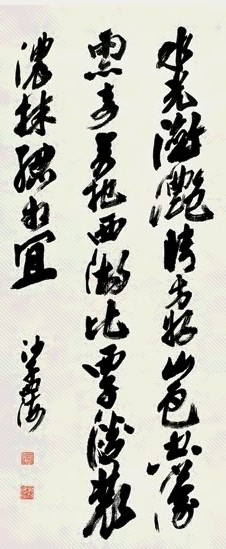 水光瀲灔晴方好山色空濛
雨亦奇若把西湖比西子淡裝
濃抹總相宜
沙孟海